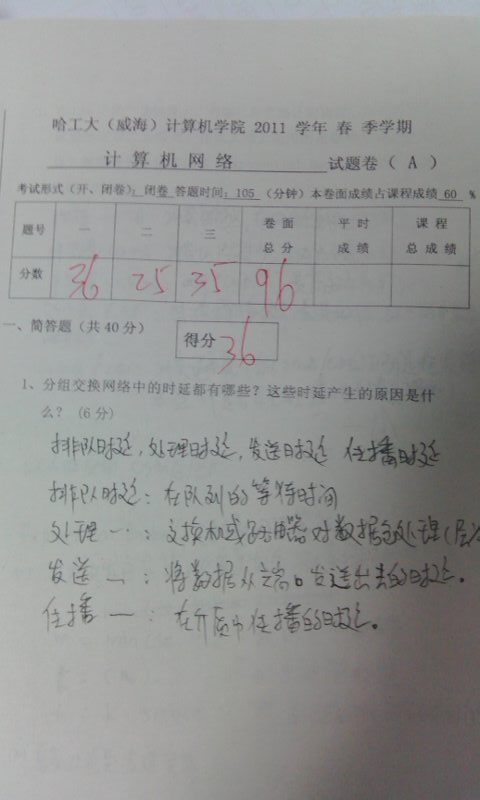 哈工大（威海）计算机学院 2011 学年 春 季学期
计 算 机 网 络 试题卷（ A ）
考试形式（开、闭卷）：闭卷 答题时间：105 （分钟）本卷面成绩占课程成绩 60 %
题号 一 二 三 卷 面 总 分 平 时 成 绩 课 程 总 成 绩
分数 36 25 35 96
一、简答题（共 40 分） 得分 36
1、分组交换网络中的时延都有哪些？这些时延产生的原因是什
么？（6 分）
排队时延，处理时延，发送时延 传播时延
排队时延：在队列的等待时间
处理 一：交换机或路由器对数据包处理（
发送 一：将数据从端口发送出去的时延。
传播 一：在介质中传播的时延。